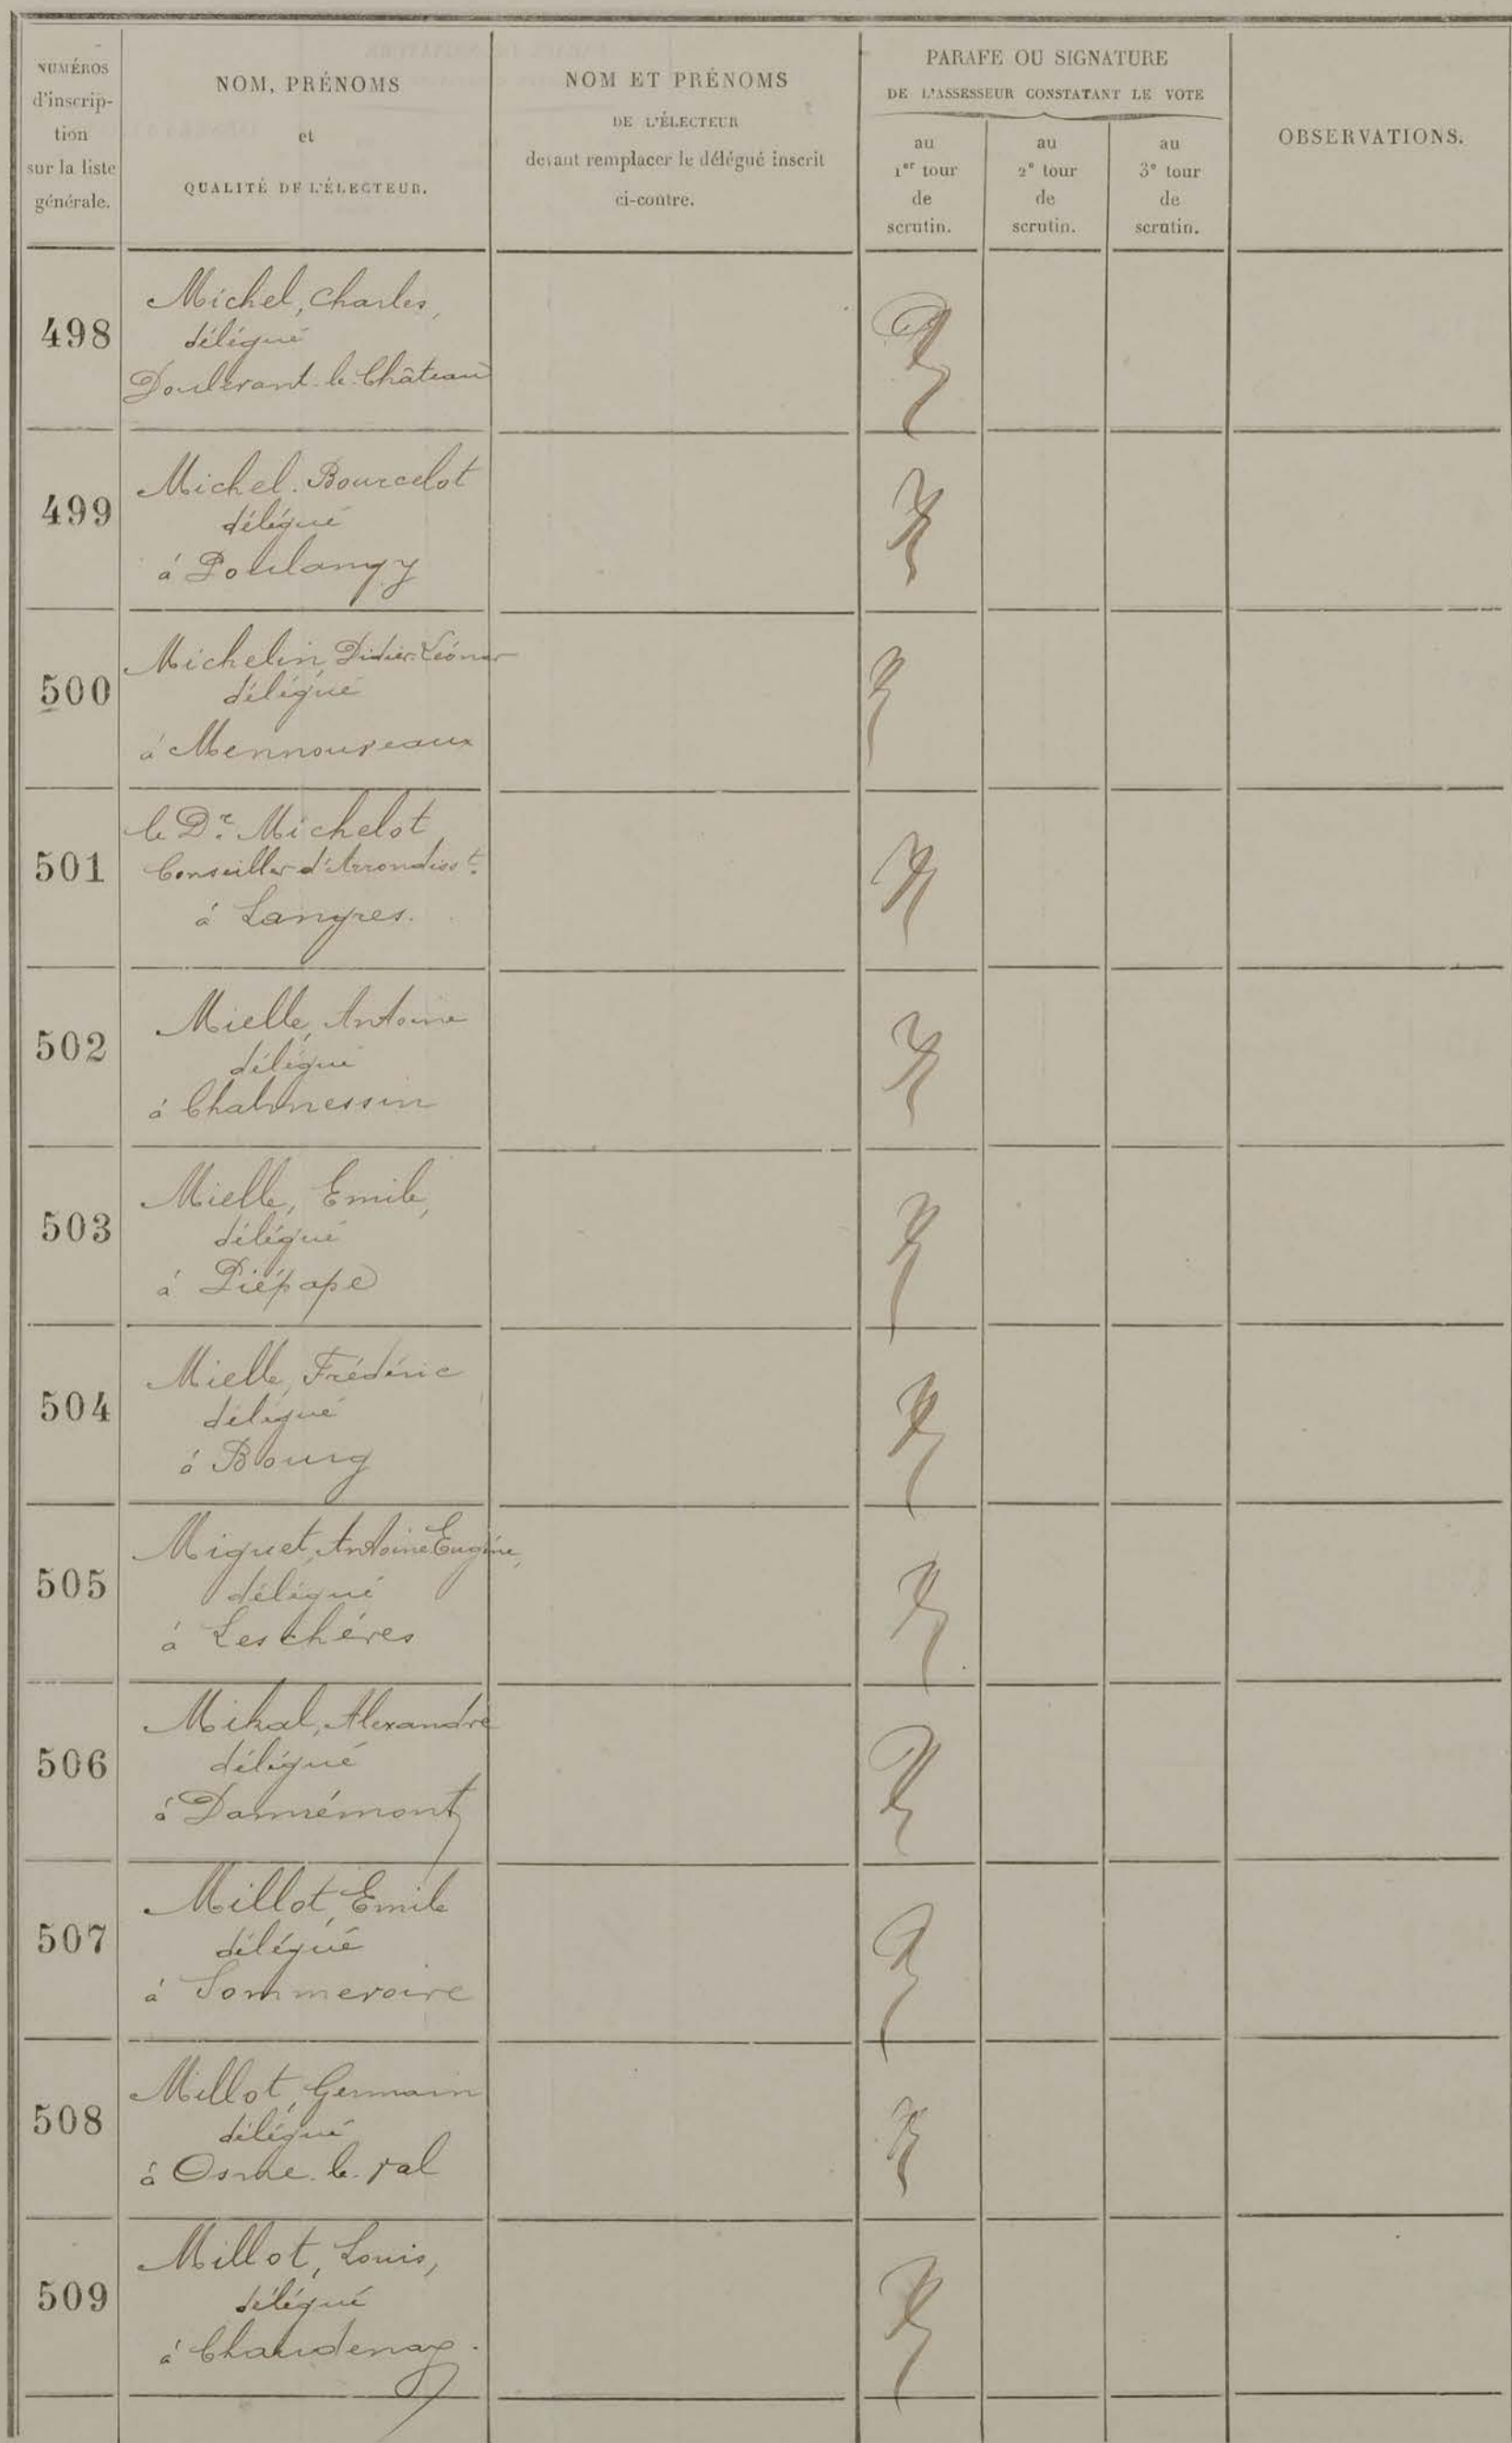 NUMÉROS
d'inscrip-
tion
sur la liste
générale.
NOM, PRÉNOMS
et
QUALITÉ DE L'ÉLECTEUR.
NOM ET PRÉNOMS
DE L'ÉLECTEUR
devant remplacer le délégué inscrit
ci-contre.
PARAFE OU SIGNATURE
DE L'ASSESSEUR CONSTATANT LE VOTE
au
1er tour
de
scrutin.
au
2e tour
de
scrutin.
au
3e tour
de
scrutin.
OBSERVATIONS.
498
Michel, Charles,
délégué
Doulevant-le-Château
499
Michel-Bourcelot
délégué
à Poulangy
500
Michelin, Didier-Léonar
délégué
à Mennouveaux
501
le Dr. Michelot,
Conseiller d'Arrondisst.
à Langres.
502
Mielle, Antoine
délégué
à Chalmessin
503
Mielle, Emile,
délégué
à Piépape
504
Mielle, Frédéric
délégué
à Bourg
505
Miguet, Antoine Eugène,
délégué
à Leschères
506
Mikal, Alexandre
délégué
à Damrémont
507
Millot, Emile
délégué
à Sommevoire
508
Millot, Germain
délégué
à Osne-le-val
509
Millot, Louis,
délégué
à Chaudenay.